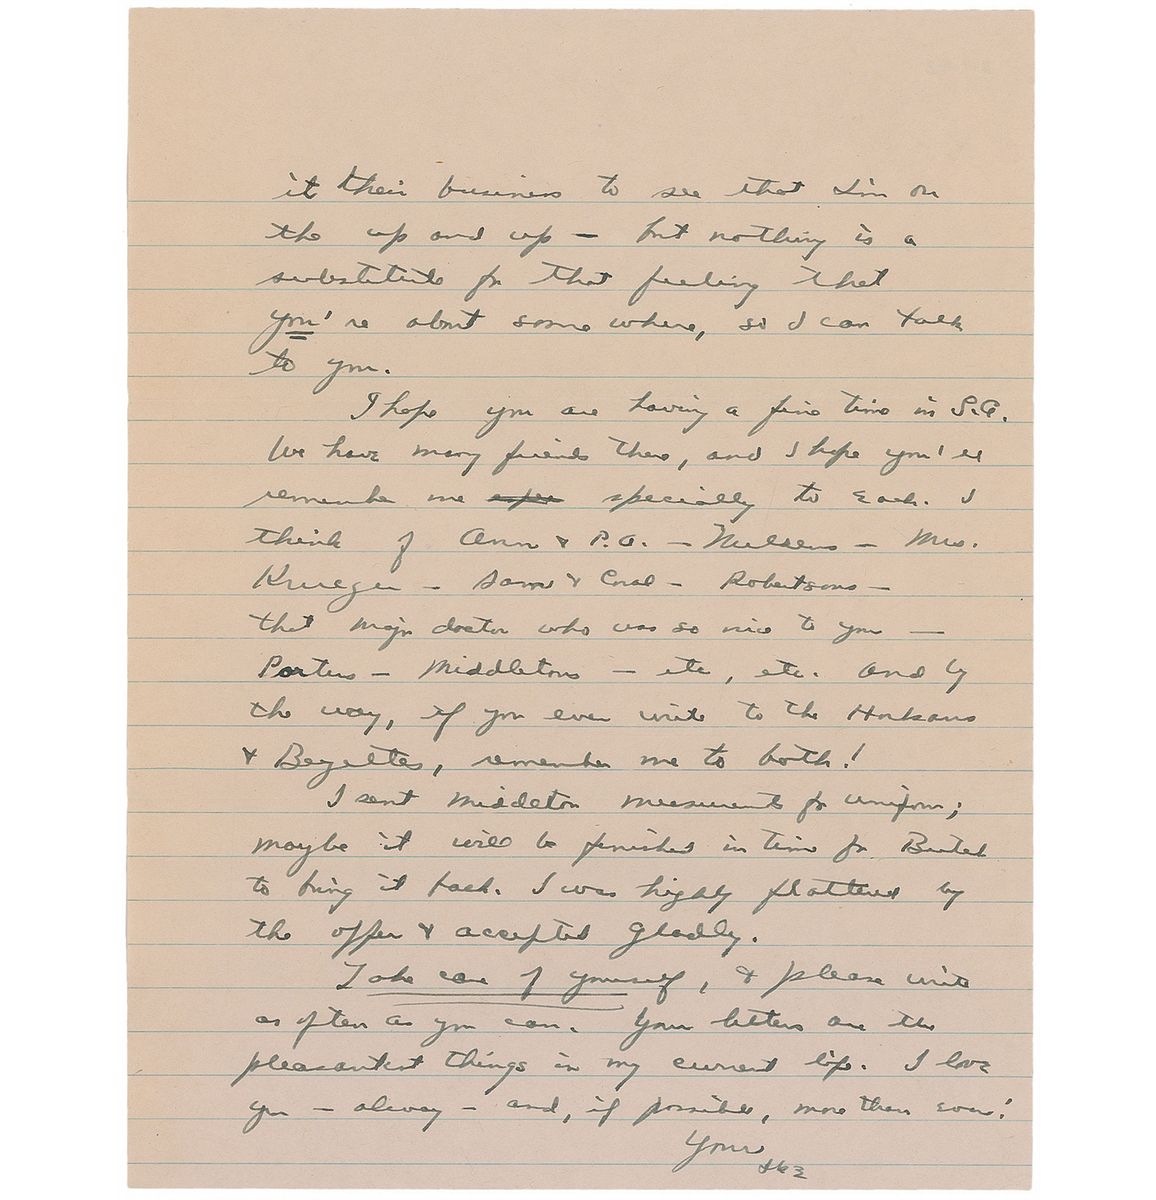 it their business to see that I'm on
the up and up – but nothing is a
substitute for that feeling that
you're about somewhere, so I can talk
to you.
I hope you are having a fine time in S.A.
We have many friends there, and I hope you'll
remember me specially to each. I
think of Ann & P.A. – – Mrs.
Krueger – & – Robertsons –
that major doctor who was so nice to you –
Porters – Middletons – etc, etc. And by
the way, if you ever write to the
& Beyettes, remember me to both!
I sent Middleton measurements for uniform;
maybe it will be finished in time for Butch
to bring it back. I was highly flattered by
the offer & accepted gladly.
Take care of yourself, & please write
as often as you can. Your letters are the
pleasantest things in my current life. I love
you – alway – and, if possible, more than ever!
Your
Ike